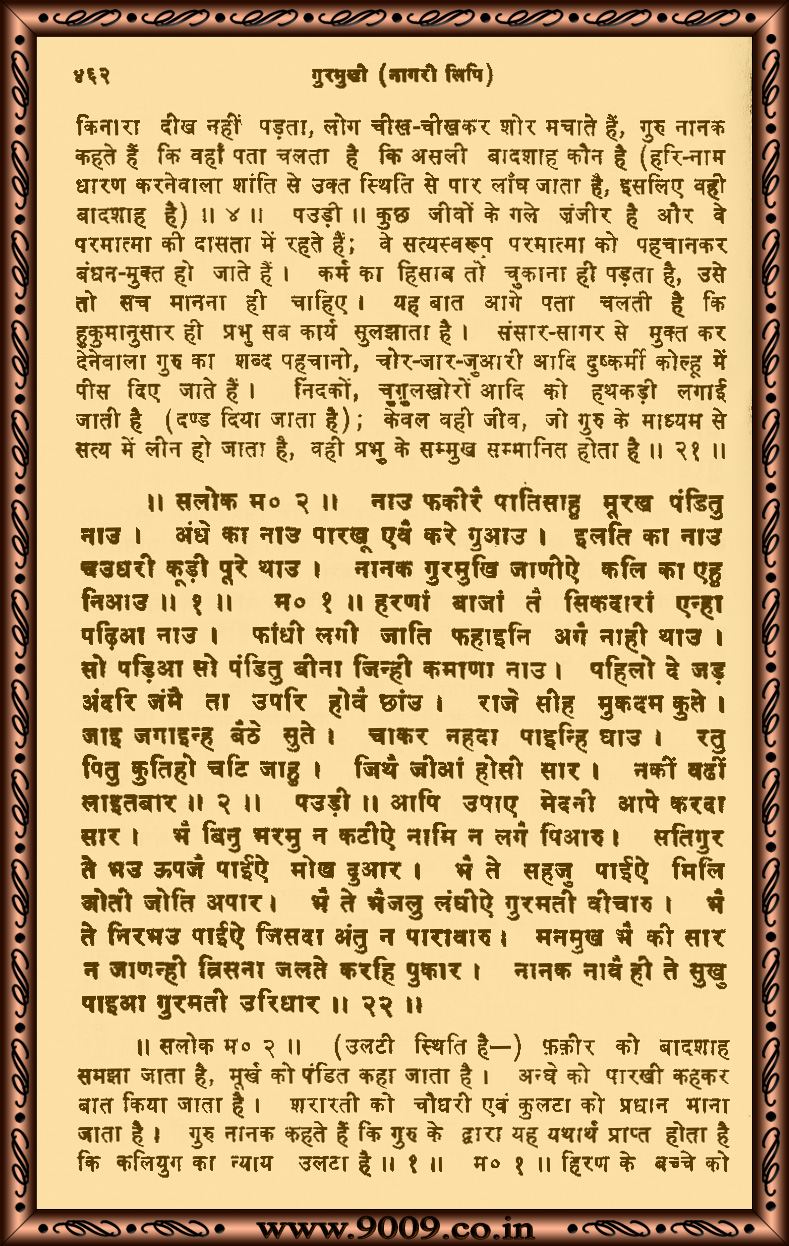 ४६२ गुरमुखी (नागरी लिपि)
किनारा दीख नहीं पड़ता, लोग चीख-चीखकर शोर मचाते हैं, गुरु नानक
कहते हैं कि वहाँ पता चलता है कि असली बादशाह कौन है (हरि-नाम
धारण करनेवाला शांति से उक्त स्थिति से पार लाँघ जाता है, इसलिए वही
बादशाह है) ॥ ४ ॥ पउड़ी ॥ कुछ जीवों के गले ज़ंजीर है और वे
परमात्मा की दासता में रहते हैं; वे सत्यस्वरूप परमात्मा को पहचानकर
बंधन-मुक्त हो जाते हैं । कर्म का हिसाब तो चुकाना ही पड़ता है, उसे
तो सच मानना ही चाहिए । यह बात आगे पता चलती है कि
हुकुमानुसार ही प्रभु सब कार्य सुलझाता है । संसार-सागर से मुक्त कर
देनेवाला गुरु का शब्द पहचानो, चोर-जार-जुआरी आदि दुष्कर्मी कोल्हू में
पीस दिए जाते हैं । निंदकों, चुग़ुलखोरों आदि को हथकड़ी लगाई
जाती है (दण्ड दिया जाता है); केवल वही जीव, जो गुरु के माध्यम से
सत्य में लीन हो जाता है, वही प्रभु के सम्मुख सम्मानित होता है ॥ २१ ॥
॥ सलोक म० २ ॥ नाउ फकीरै पातिसाहु मूरख पंडितु
नाउ । अंधे का नाउ पारखू एवै करे गुआउ । इलति का नाउ
चउधरी कूड़ी पूरे थाउ । नानक गुरमुखि जाणीऐ कलि का एहु
निआउ ॥ १ ॥ म० १ ॥ हरणां बाजां तै सिकदारां एन्हा
पढ़िआ नाउ । फांधी लगी जाति फहाइनि अगै नाही थाउ ।
सो पड़िआ सो पंडितु बीना जिन्ही कमाणा नाउ । पहिलो दे जड़
अंदरि जंमै ता उपरि होवै छांउ । राजे सीह मुकदम कुते ।
जाइ जगाइन्ह बैठे सुते । चाकर नहदा पाइन्हि घाउ । रतु
पितु कुतिहो चटि जाहु । जिथै जीआं होसी सार । नकीं वढीं
लाइतबार ॥ २ ॥ पउड़ी ॥ आपि उपाए मेदनी आपे करदा
सार । भै बिनु भरमु न कटीऐ नामि न लगै पिआरु । सतिगुर
ते भउ ऊपजै पाईऐ मोख दुआर । भै ते सहजु पाईऐ मिलि
जोती जोति अपार । भै ते भैजलु लंघीऐ गुरमती वीचारु । भै
ते निरभउ पाईऐ जिसदा अंतु न पारावारु । मनमुख भै की सार
न जाणन्ही त्रिसना जलते करहि पुकार । नानक नावै ही ते सुखु
पाइआ गुरमती उरिधार ॥ २२ ॥
॥ सलोक म० २ ॥ (उलटी स्थिति है—) फ़क़ीर को बादशाह
समझा जाता है, मूर्ख को पंडित कहा जाता है । अन्धे को पारखी कहकर
बात किया जाता है । शरारती को चौधरी एवं कुलटा को प्रधान माना
जाता है । गुरु नानक कहते हैं कि गुरु के द्वारा यह यथार्थ प्राप्त होता है
कि कलियुग का न्याय उलटा है ॥ १ ॥ म० १ ॥ हिरण के बच्चे को
www.9009.co.in